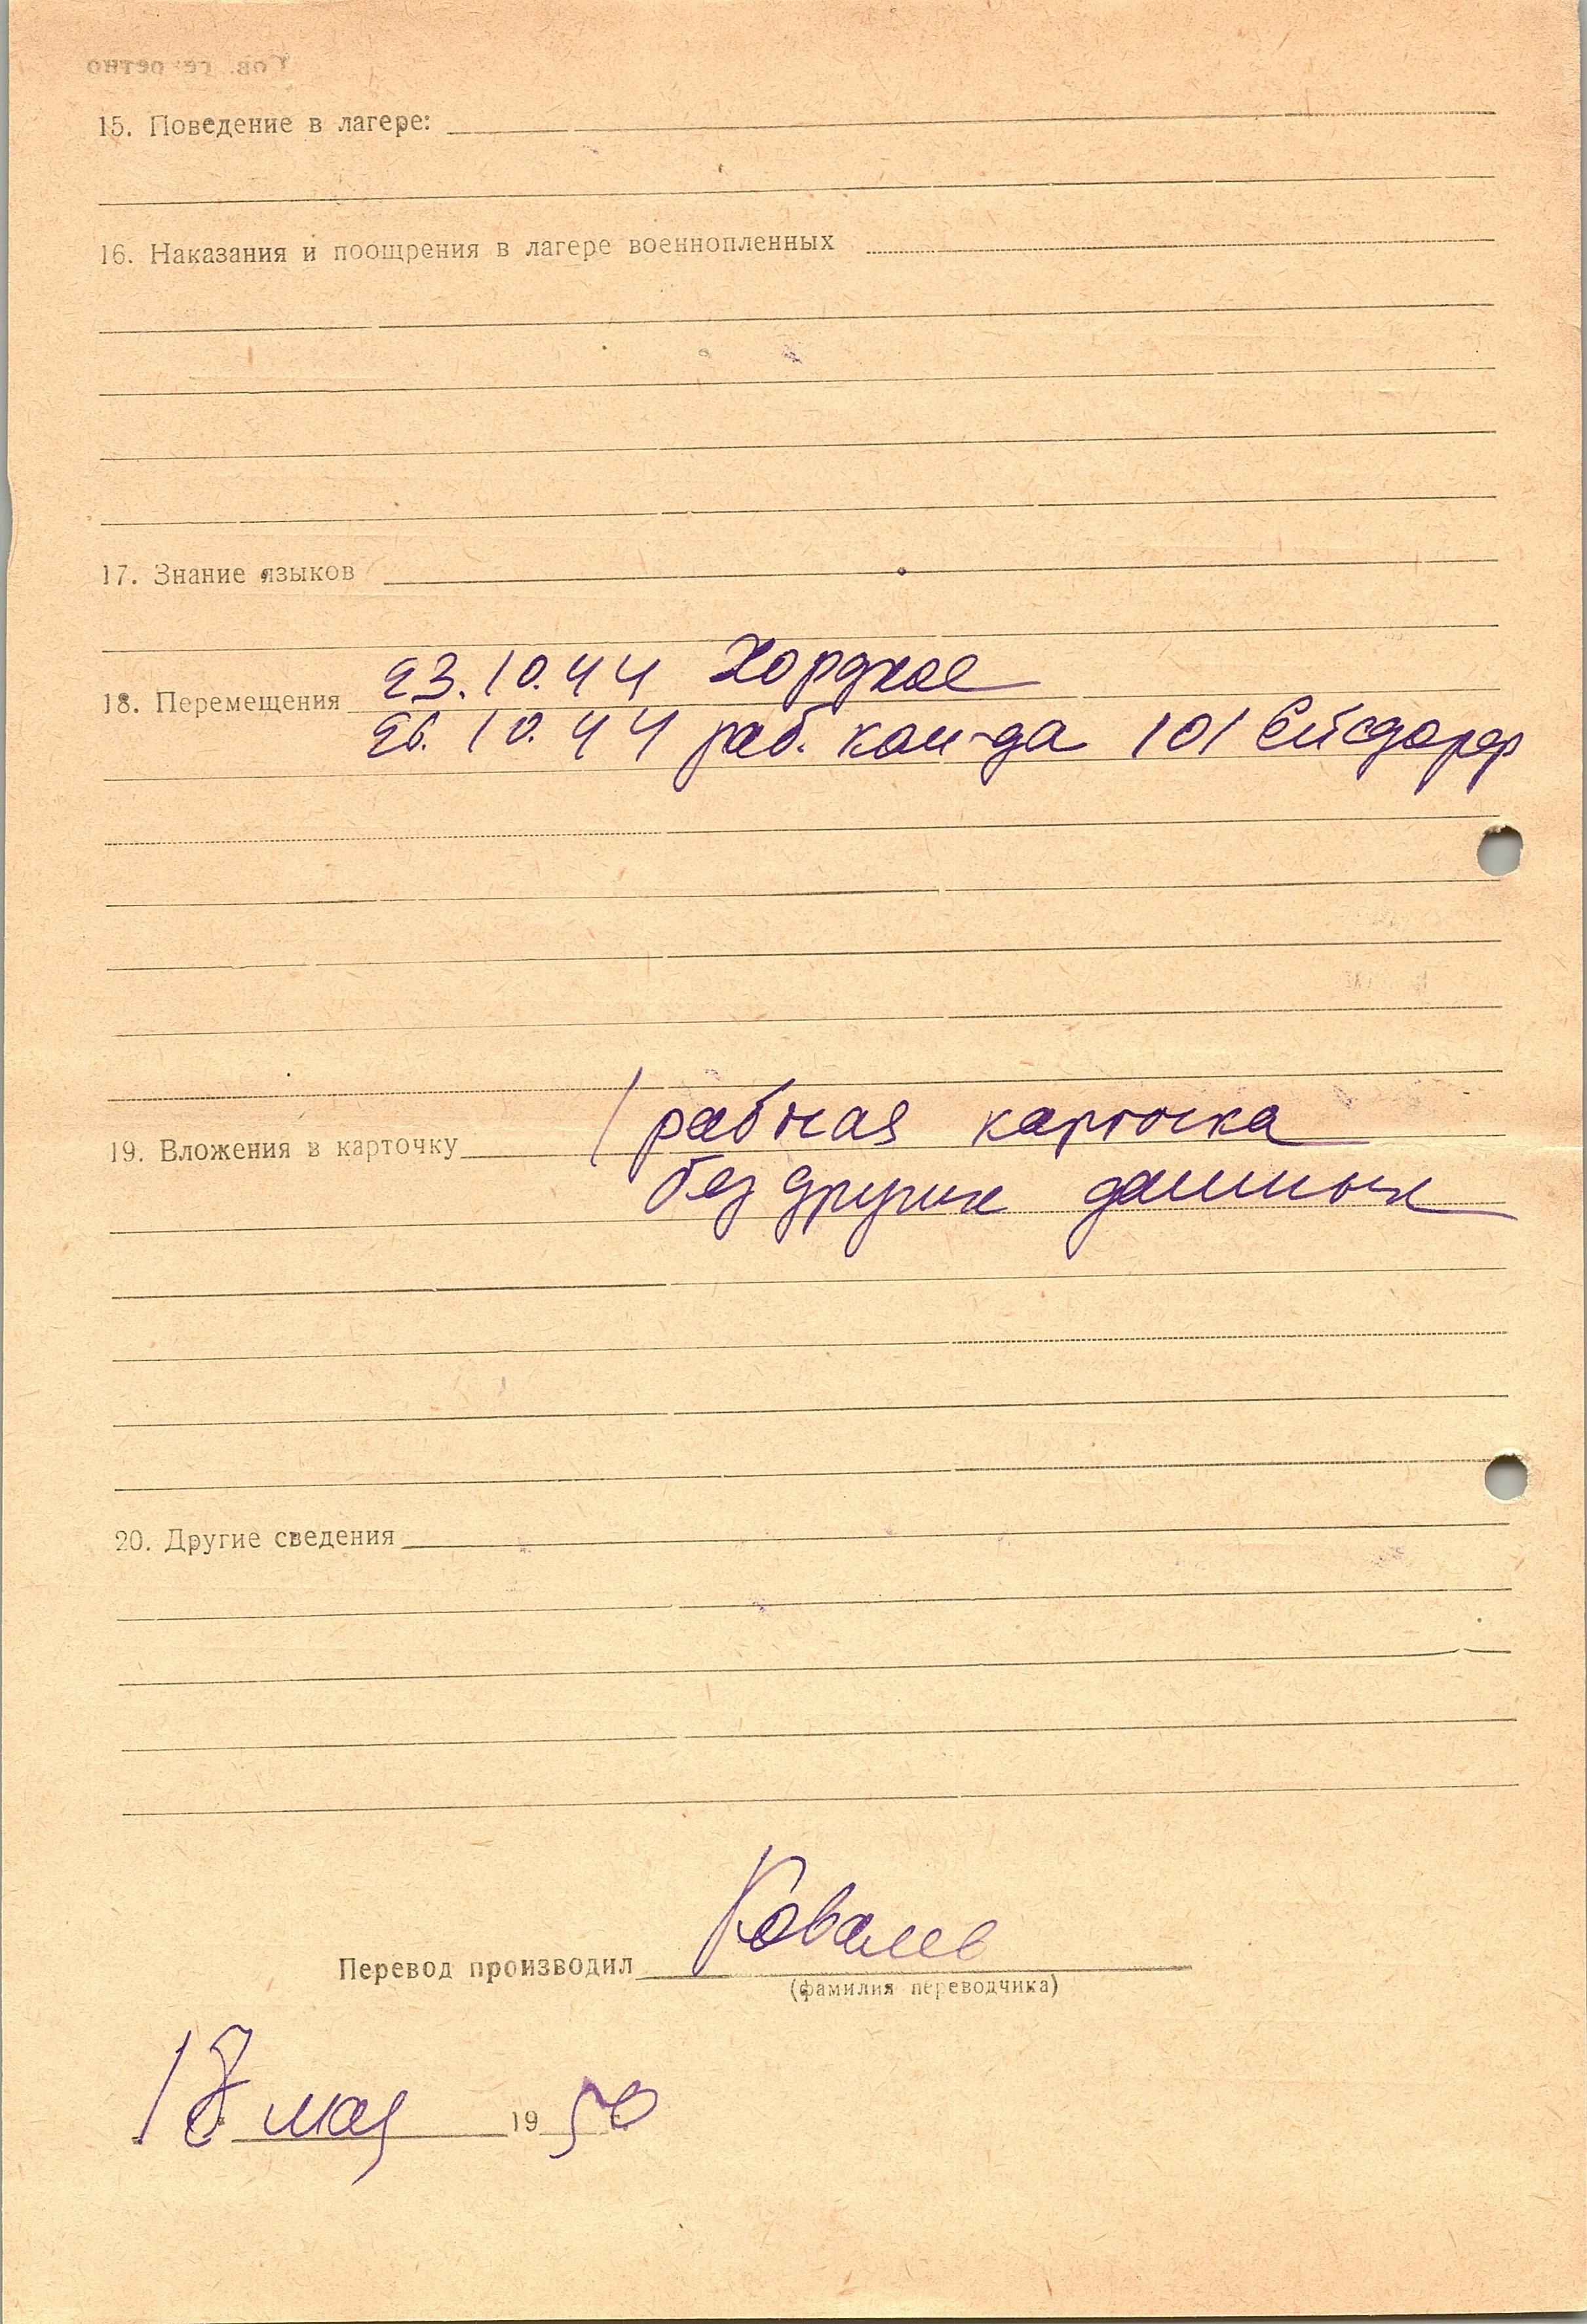 15. Поведение в лагере:
16. Наказания и поощрения в лагере военнопленных
17. Знание языков
18. Перемещения 23.10.44
26.10.44 раб. ком-да 101 Ейсдорф
19. Вложения в карточку рабочая карточка
без других данных
20. Другие сведения
Перевод производил Ковалев
(фамилия переводчика)
18 мая 1950